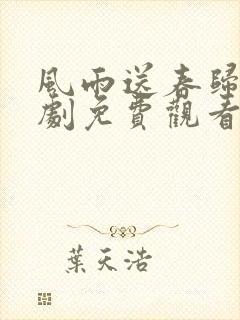 風雨送春歸
劇免費觀看
葉天浩